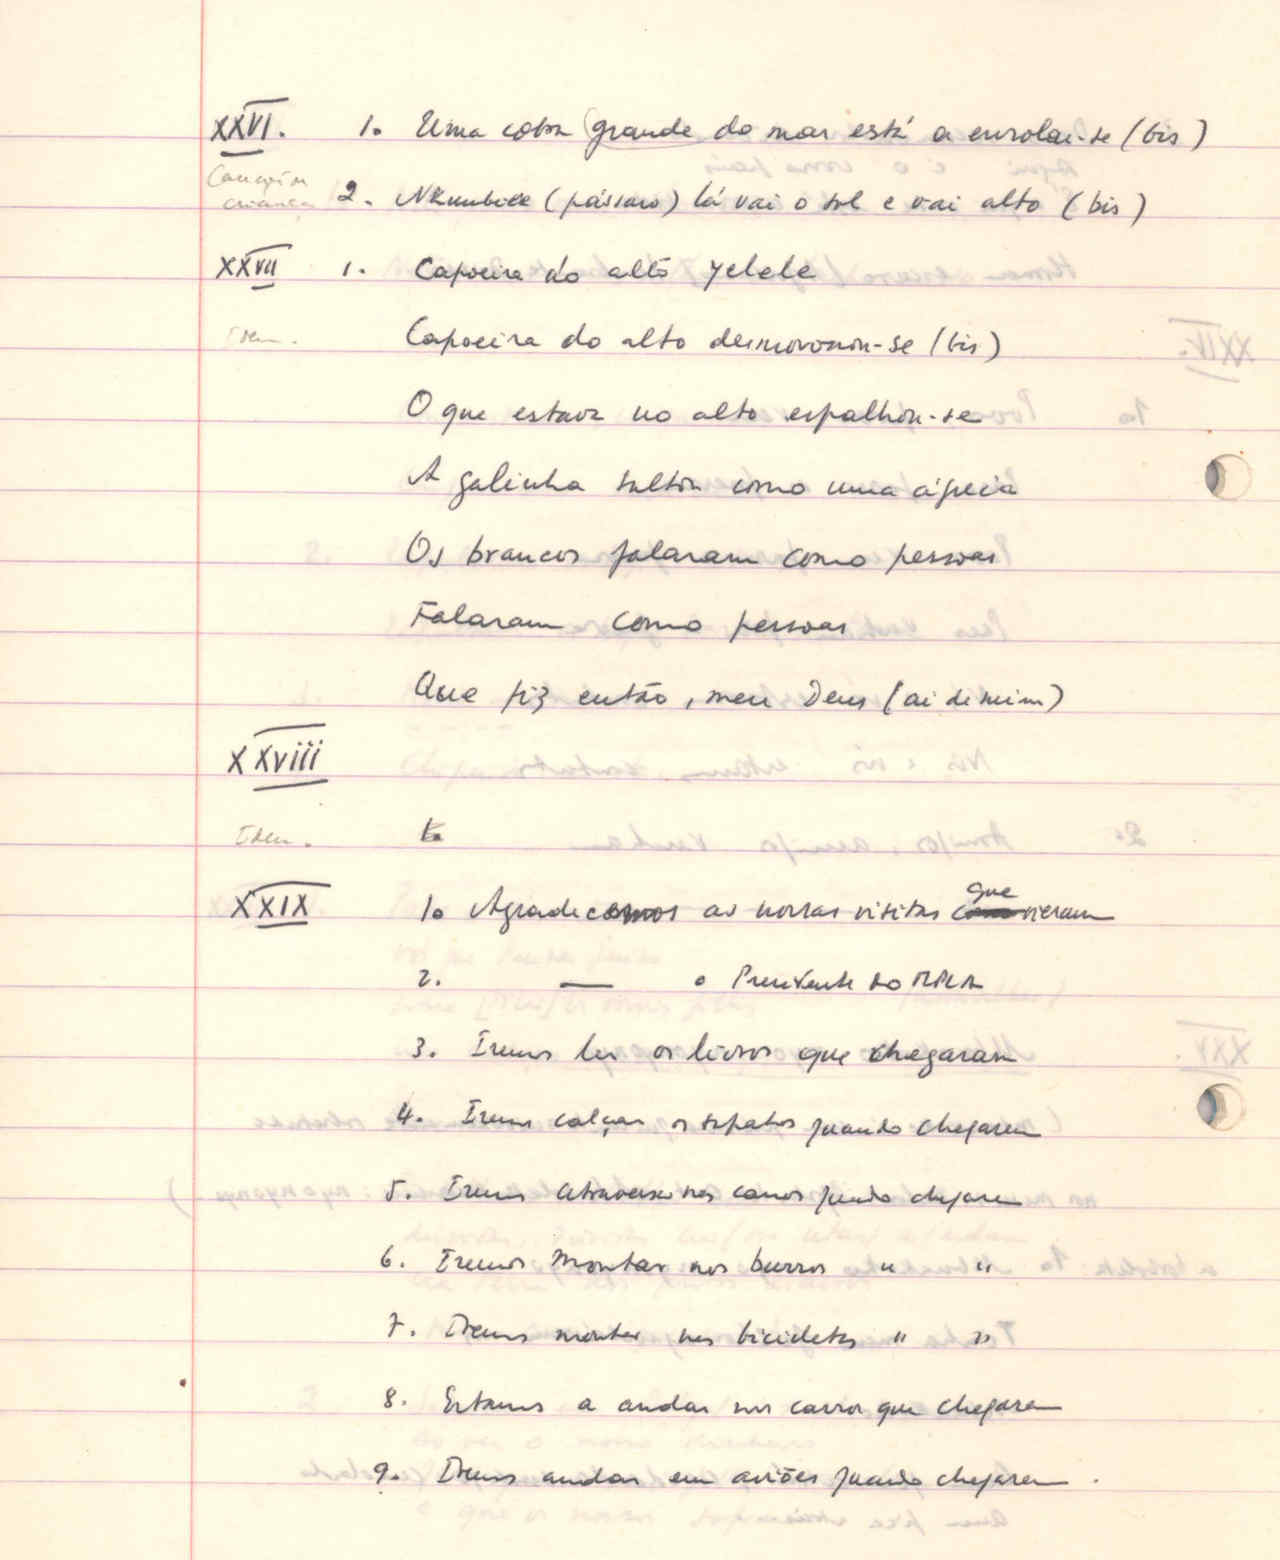 XXVI. 1. Uma cobra (grande do mar está a enrolar-se (bis)
Canção criança
2. Nkumbikk (pássaro) lá vai o sol e vai alto (bis)
XXVII 1. Capoeira do alto yelele
Idem.
Capoeira do alto desmoronou-se (bis)
O que estava no alto espalhou-se
A galinha saltou como uma águia
Os brancos falaram como pessoas
Falaram como pessoas
Que fiz então, meu Deus (ai de mim)
XXVIII
Idem.
XXIX 1. Agradecemos as nossas visitas que vieram
2. — o Presidente do MPLA
3. Iremos ler os livros que chegaram
4. Iremos calçar os sapatos quando chegarem
5. Iremos nos carros quando chegarem
6. Iremos montar nos burros " "
7. Iremos montar nas bicicletas " "
8. Estamos a andar nos carros que chegaram
9. Iremos andar em aviões quando chegarem.